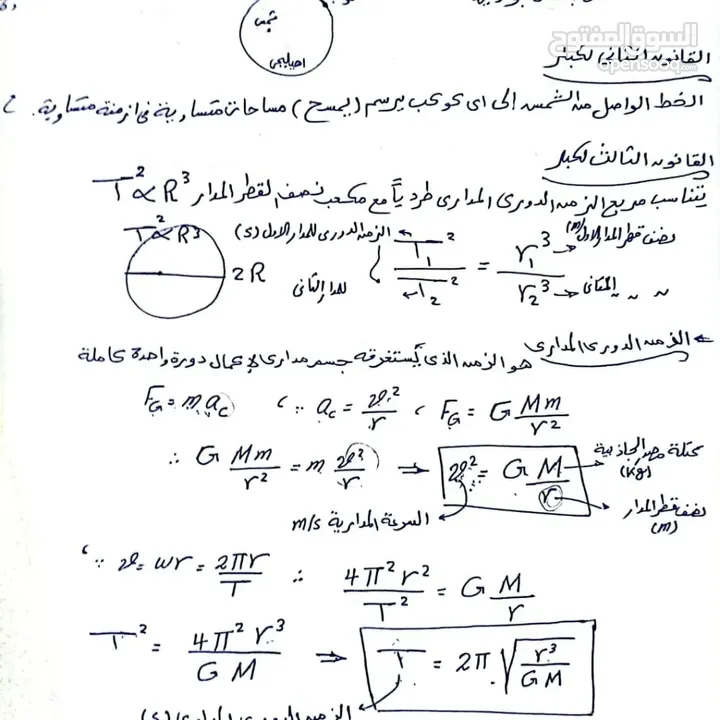 شمس
اهليلجي
السوق المفتوح
opensooq.com
القانون الثاني لكبلر
الخط الواصل من الشمس إلى اي كوكب يرسم (يمسح) مساحات متساوية في ازمنة متساوية.
القانون الثالث لكبلر
يتناسب مربع الزمن الدوري المداري طرديًا مع مكعب نصف القطر المدار T² ∝ R³
T² ∝ R³
2R
الزمن الدوري للمدار الاول (s)
للمدار الثاني
T₁² / T₂² = r₁³ / r₂³
نصف قطر المدار الاول (m)
" " الثاني
الزمن الدوري المداري
هو الزمن الذي يستغرقه جسم مداري لإكمال دورة واحدة كاملة
F_G = m a_c ، ∵ a_c = v²/r ، F_G = G Mm/r²
∴ G Mm/r² = m v²/r ⇒ v² = G M/r
كتلة مصدر الجاذبية (kg)
نصف قطر المدار (m)
السرعة المدارية m/s
∵ v = wr = 2πr/T ∴ 4π²r²/T² = G M/r
T² = 4π²r³/GM ⇒ T = 2π √(r³/GM)
الزمن الدوري المداري (s)